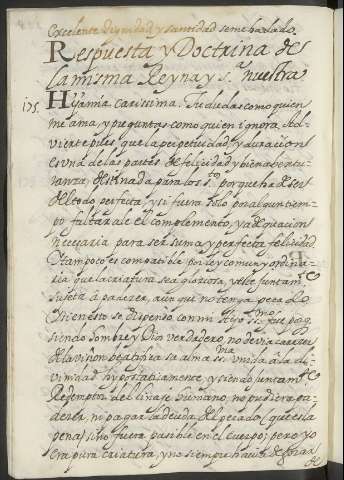 Excelente Dignidad y santidad se me ha dado.
Respuesta y Doctrina de
la misma Reyna y s.ª nuestra
175. Hija mia carissima. Tu dudas como quien
me ama, y preguntas como quien ignora. Ad-
vierte pues que la perpetuidad y duracion
es una de las partes de felicidad y bienaventu-
ranza, destinada para los s.tos porque ha de ser
del todo perfecta, y si fuera solo por algun tiem-
po faltarale el complemento, y adequacion
necesaria para ser suma y perfecta felicidad.
Y tampoco es compatible por ley comun y ordina-
ria que la criatura sea gloriosa, y este juntam.te
sujeta à padecer, aun que no tenga peca do.
Y si en esto se dispensò con mi Hijo s.mo fue porq̃
siendo hombre y Dios verdadero, no devia carecer
de la vision beatifica su alma s.ma unida à la di-
vinidad hypostaticamente, y siendo juntam.te
Redemptor del linaje humano, no pudiera pa-
decer, ni pagar la deuda del pecado (que es la
pena) si no fuera pasible en el cuerpo; pero yo
era pura criatura, y no siempre havia de gozar
de